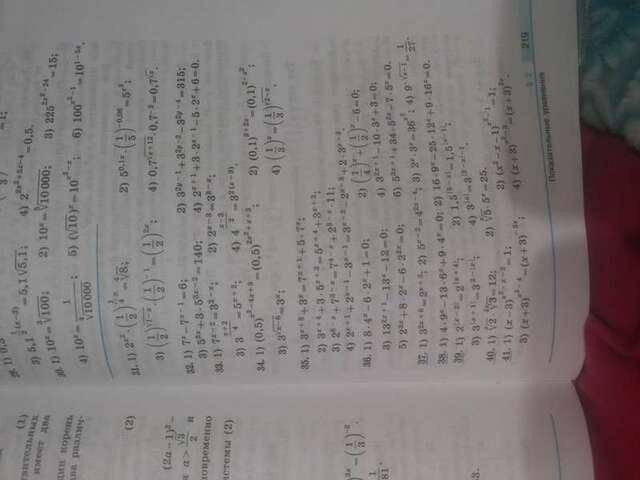 (1)
ствительных
имеет два
один корень
два различ-
(2)
(2a−1)²−
a > √3/2 и
новременно
системы (2)
= (1/3)⁻².
1/81.
3) 5,1^(½(x−3)) = 5,1√5,1; 4) 2^(2x²+5x−4) = 0,5.
30. 1) 10ˣ = ∛100; 2) 10ˣ = ⁵√10 000; 3) 225^(2x²−24) = 15;
5) (√10)ˣ = 10^(x²−x); 6) 100^(x²−1) = 10^(1−5x).
31. 1)
3) (1/2)^√(1−x) · (1/2)⁻¹ = (1/2)^(2x); 4) 0,7^√(x+12) · 0,7⁻² = 0,7^√x.
32. 1) 7ˣ − 7ˣ⁻¹ = 6; 2) 3^(2y−1) + 3^(2y−2) − 3^(2y−4) = 315;
3) 5^(3x) + 3·5^(3x−2) = 140; 4) 2^(x+1) + 3·2^(x−1) − 5·2ˣ + 6 = 0.
33. 1) 7^(x−2) = 3^(2−x); 2) 2^(x−3) = 3^(3−x);
3) 3^((x+2)/4) = 5^(x+2); 4) 4^((x−3)/2) = 3^(2(x−3)).
34. 1) (0,5)^(x²−4x+3) = (0,5)^(2x²+x+3); 2) (0,1)^(3+2x) = (0,1)^(2−x²);
3) 3^√(x−6) = 3ˣ; 4) (1/3)ˣ = (1/3)^√(2−x).
35. 1) 3^(x+3) + 3ˣ = 7^(x+1) + 5·7ˣ;
2) 3^(x+4) + 3·5^(x+3) = 5^(x+4) + 3^(x+3);
3) 2^(8−x) + 7^(3−x) = 7^(4−x) + 2^(3−x)·11;
4) 2^(x+1) + 2^(x−1) − 3^(x−1) = 3^(x−2) − 2^(x−3) + 2·3^(x−3).
36. 1) 8·4ˣ − 6·2ˣ + 1 = 0; 2) (1/4)ˣ + (1/2)ˣ − 6 = 0;
3) 13^(2x+1) − 13ˣ − 12 = 0; 4) 3^(2x+1) − 10·3ˣ + 3 = 0;
5) 2^(3x) + 8·2ˣ − 6·2^(2x) = 0; 6) 5^(3x+1) + 34·5^(2x) − 7·5ˣ = 0.
37. 1) 3^(2x+6) = 2^(x+3); 2) 5^(x−2) = 4^(2x−4); 3) 2ˣ·3ˣ = 36^(x²); 4) 9^(−√(x−1)) = 1/27.
38. 1) 4·9ˣ − 13·6ˣ + 9·4ˣ = 0; 2) 16·9ˣ − 25·12ˣ + 9·16ˣ = 0.
39. 1) 2^|x−2| = 2^|x+4|; 2) 1,5^|5−x| = 1,5^|x−1|;
3) 3^|x+1| = 3^(2−|x|); 4) 3^|x| = 3^(|2−x|−1).
40. 1) ˣ√2 · ²ˣ√3 = 12; 2) ˣ√5 · 5ˣ = 25.
41. 1) (x−3)^(x²−x−2) = 1; 2) (x²−x−1)^(x²−1) = 1;
3) (x+3)^(x²−4) = (x+3)^(−3x); 4) (x+3)^(x²−3) = (x+3)^(2x).
219
Показательные уравнения